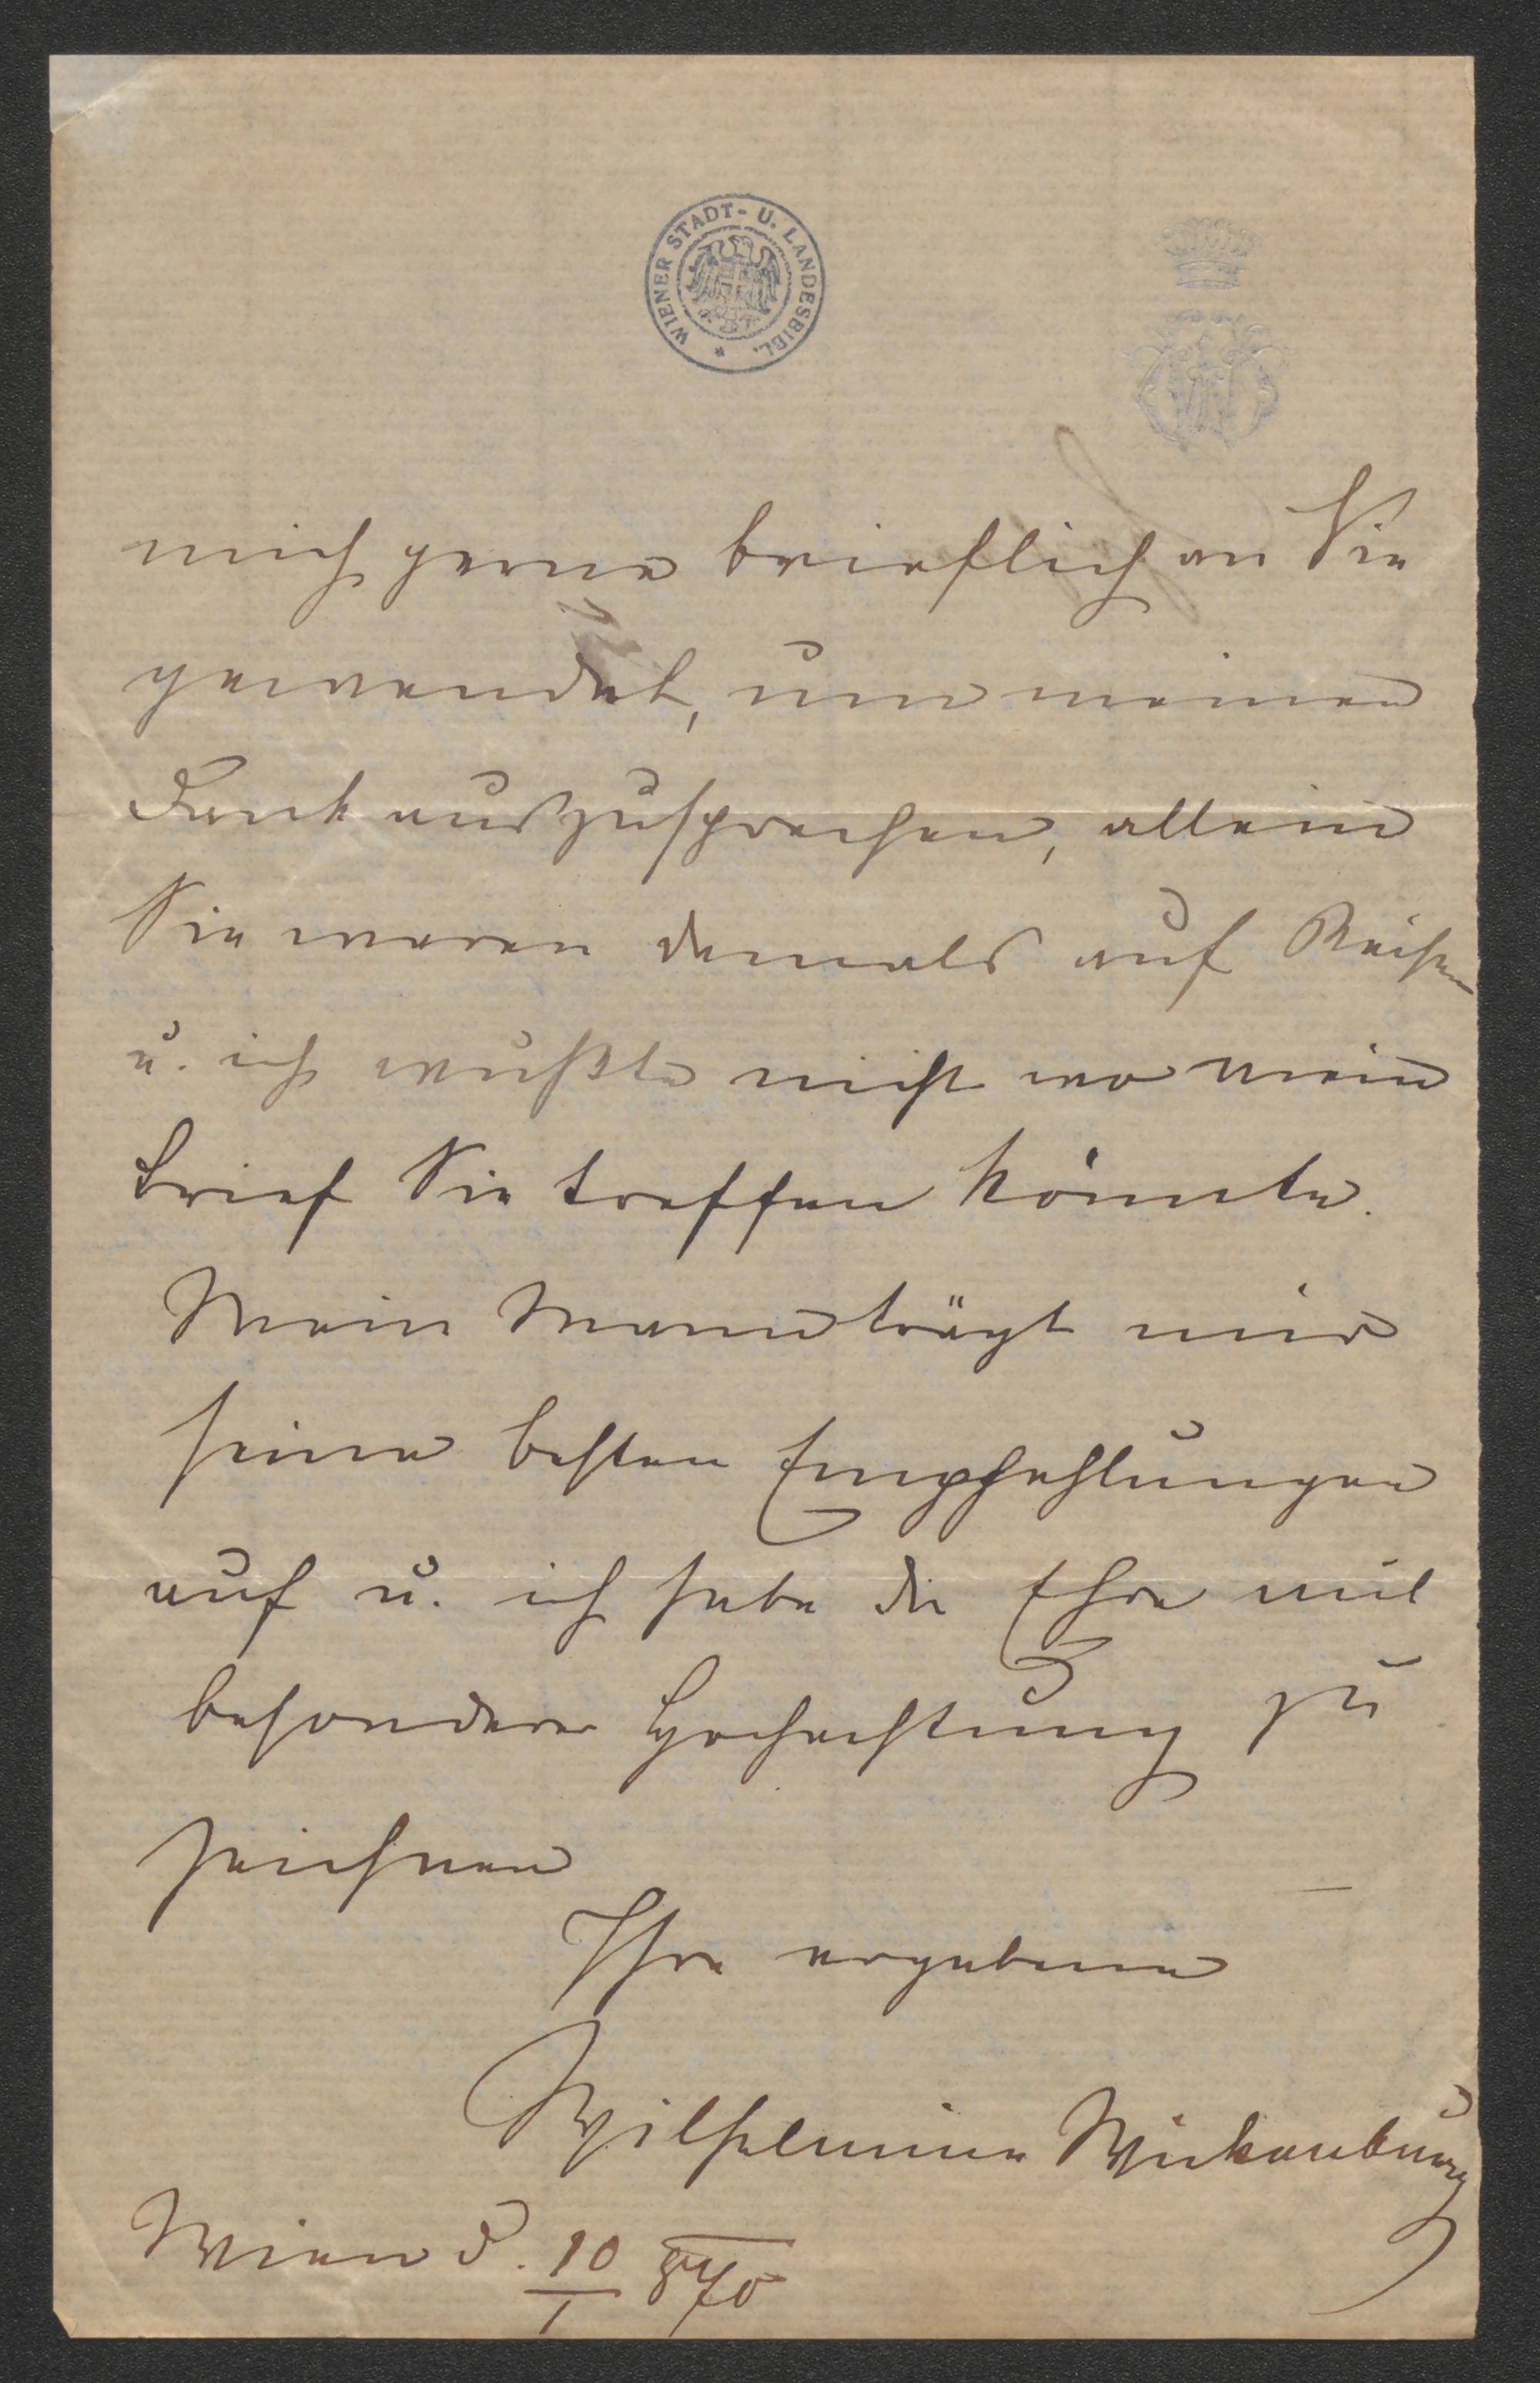 WIENER STADT- U. LANDESBIBL. *
mich gerne brieflich an Sie
gewendet, um meinen
Dank auszusprechen, allein
Sie waren damals auf Reisen
u. ich wußte nicht wo mein
Brief Sie treffen könnte.
Mein Mann trägt mir
seine besten Empfehlungen
auf u. ich habe die Ehre mit
besonderer Hochachtung zu
zeichnen
Ihre ergebene
Wilhelmine Wickenburg
Wien d. 10/1 870